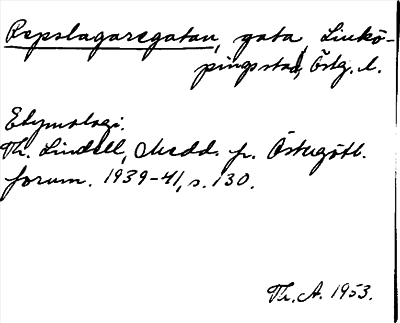 Repslagaregatan, gata, Linkö-
pings stad, Östg. l.
Etymologi:
Th. Lindell, Medd. fr. Östergötl.
fornm. 1939-41, s. 130.
Th. A. 1953.